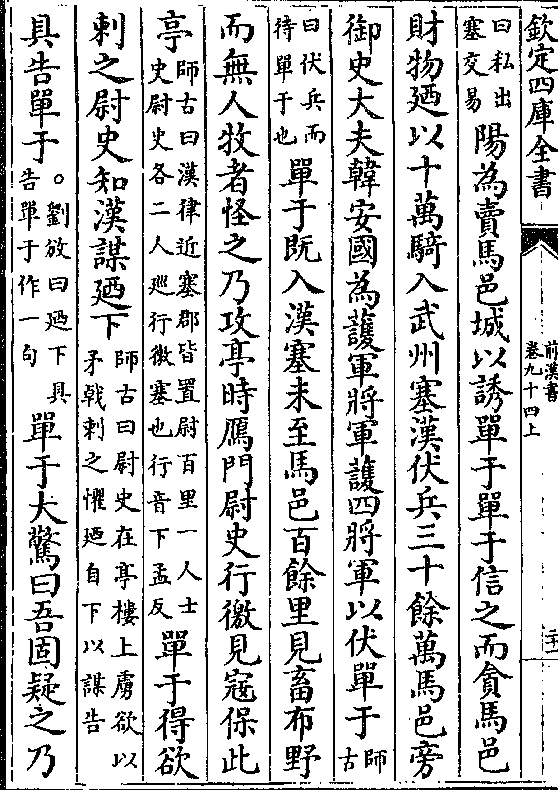 欽定四庫全書
前漢書
卷九十四上
曰私出
塞交易
陽為賣馬邑城以誘單于單于信之而貪馬邑
財物廼以十萬騎入武州塞漢伏兵三十餘萬馬邑旁
御史大夫韓安國為護軍將軍護四將軍以伏單于
師
古
曰伏兵而
待單于也
單于既入漢塞未至馬邑百餘里見畜布野
而無人牧者怪之乃攻亭時鴈門尉史行徼見寇保此
亭
師古曰漢律近塞郡皆置尉百里一人士
史尉史各二人巡行徼塞也行音下孟反
單于得欲
刺之尉史知漢謀廼下
師古曰尉史在亭樓上虜欲以
矛戟刺之懼廼自下以謀告
具告單于
○劉攽曰廼下具
告單于作一句
單于大驚曰吾固疑之乃